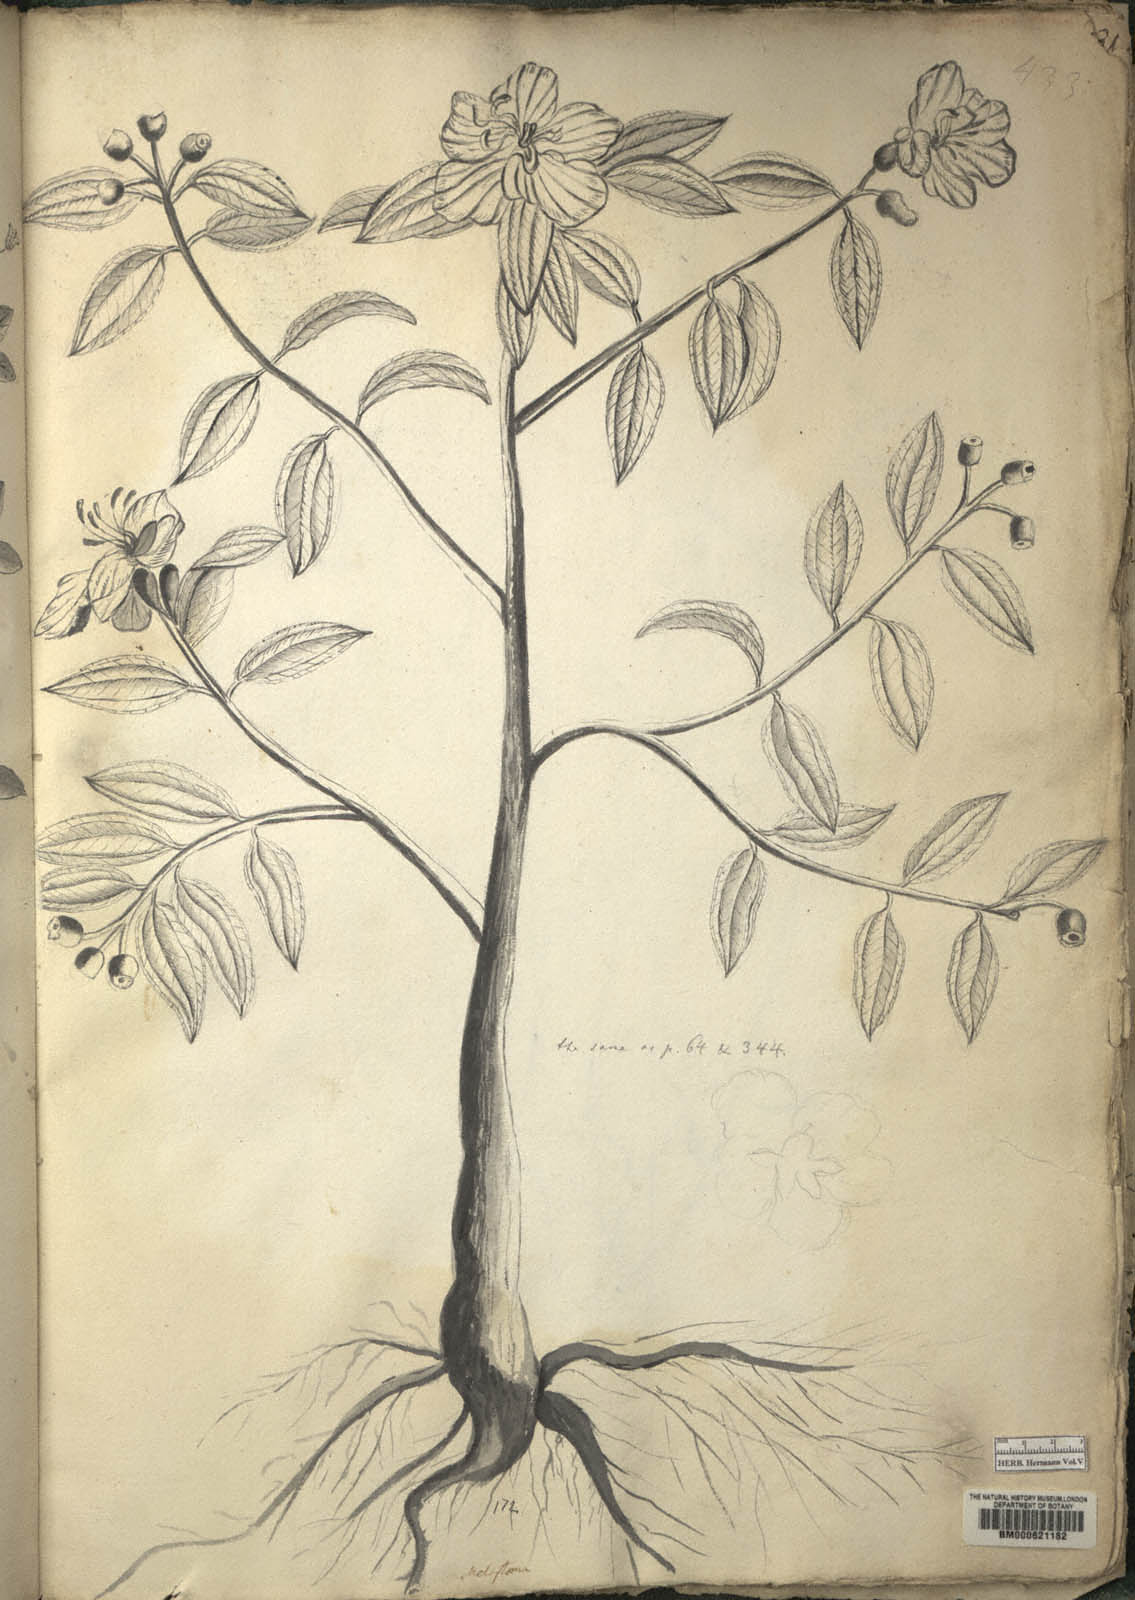 433.
the same as p. 64 & 344.
HERB. Hermann Vol. V
THE NATURAL HISTORY MUSEUM, LONDON
DEPARTMENT OF BOTANY
BM000621182
172
Melastoma